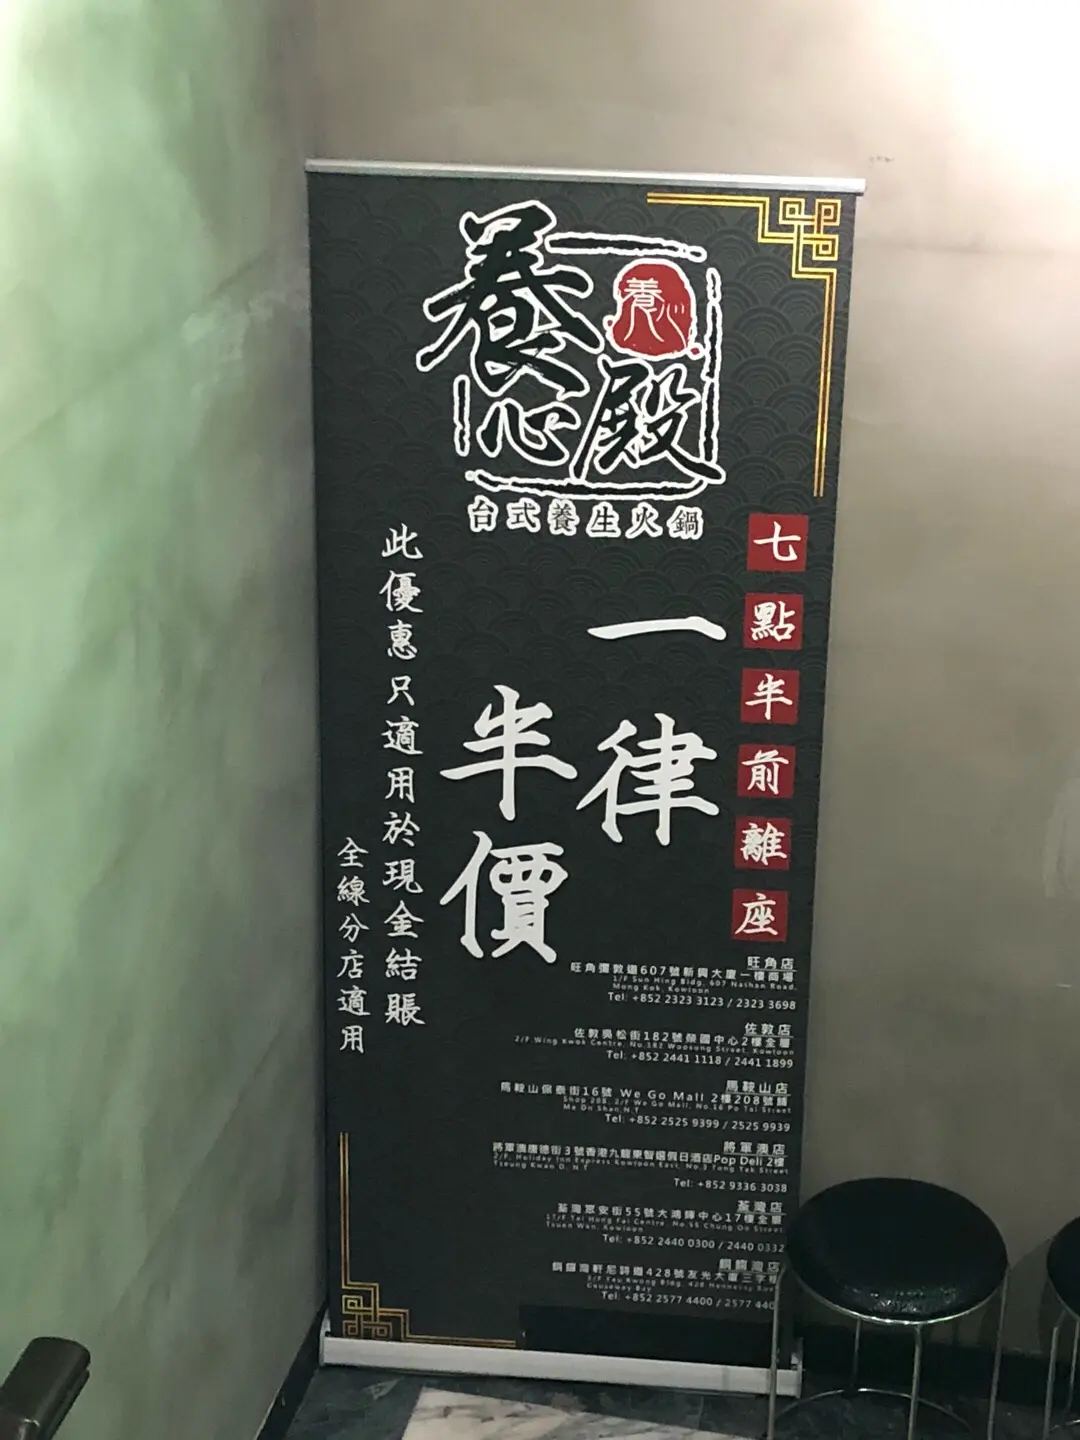 養心殿
養心
台式養生火鍋
七點半前離座
一律
半價
此優惠只適用於現金結賬
全線分店適用
旺角店
旺角彌敦道607號新興大廈一樓商場
1/F Sun Hing Bldg, 607 Nathan Road,
Mong Kok, Kowloon
Tel: +852 2323 3123 / 2323 3698
佐敦店
佐敦吳松街182號榮國中心2樓全層
2/F Wing Kwok Centre, No.182 Woosung Street, Kowloon
Tel: +852 2441 1118 / 2441 1899
馬鞍山店
馬鞍山保泰街16號 We Go Mall 2樓208號舖
Shop 208, 2/F We Go Mall, No.16 Po Tai Street
Ma On Shan,N.T
Tel: +852 2525 9399 / 2525 9939
將軍澳店
將軍澳唐德街3號香港九龍東智選假日酒店Pop Deli 2樓
2/F, Holiday Inn Express Kowloon East, No.3 Tong Tak Street
Tseung Kwan O, N.T
Tel: +852 9336 3038
荃灣店
荃灣眾安街55號大鴻輝中心17樓全層
17/F Tai Hung Fai Centre, No.55 Chung On Street,
Tsuen Wan, Kowloon
Tel: +852 2440 0300 / 2440 0332
銅鑼灣店
銅鑼灣軒尼詩道428號友光大廈三字樓
Causeway Bay
Tel: +852 2577 4400 / 2577 440